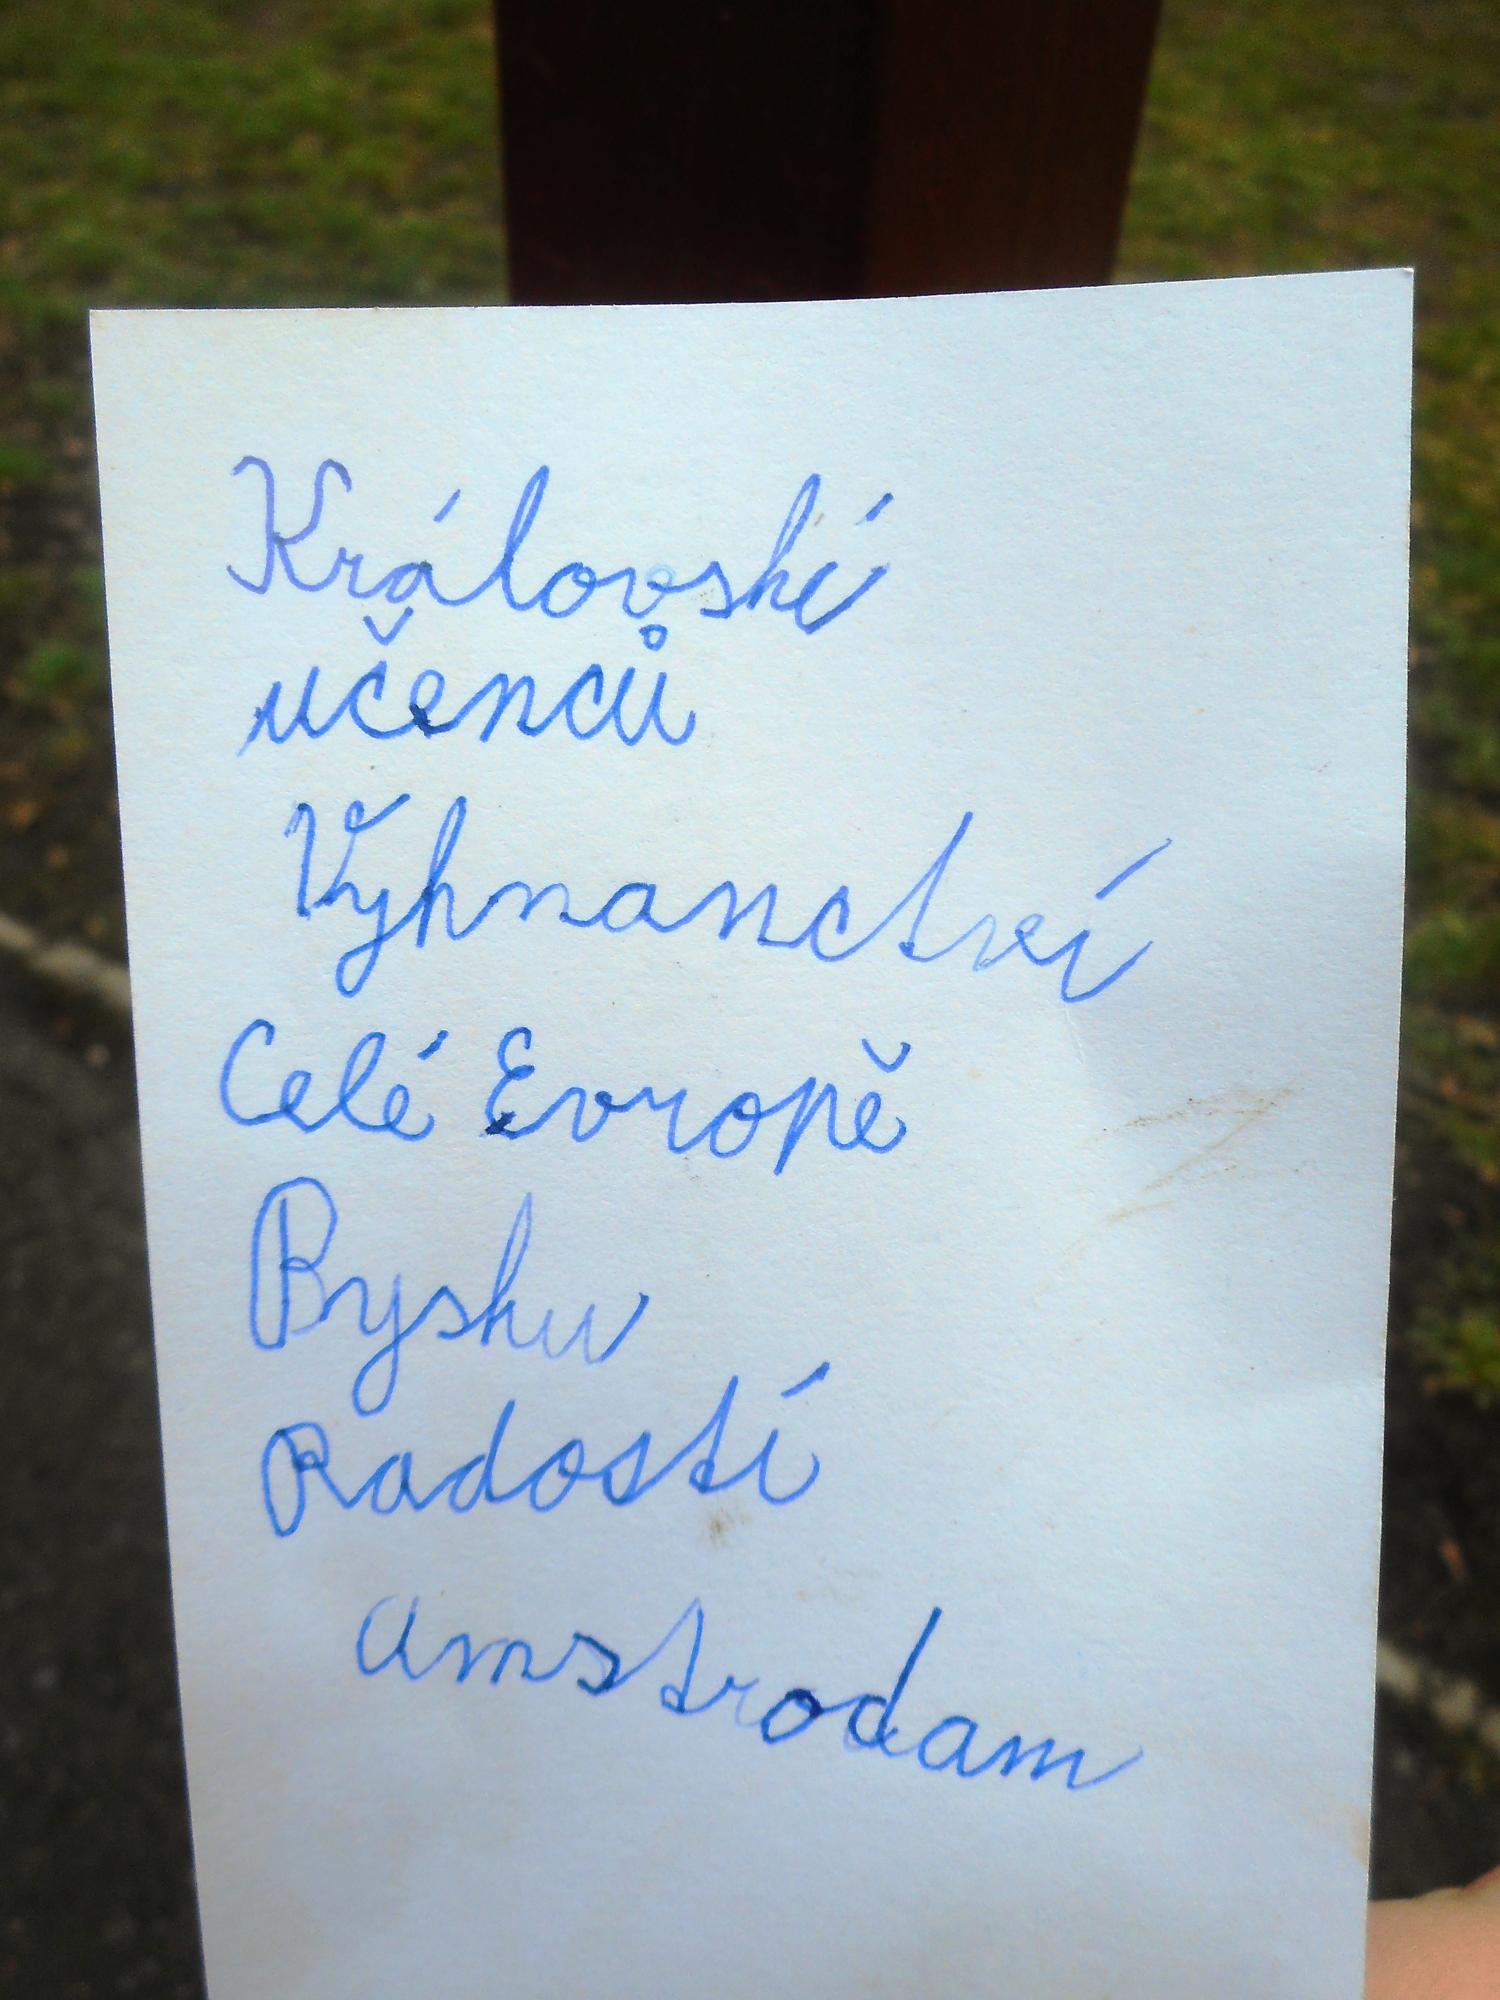 Královské
učenců
Vyhnanctví
Celé Evropě
Byshu
Radostí
amstrodam